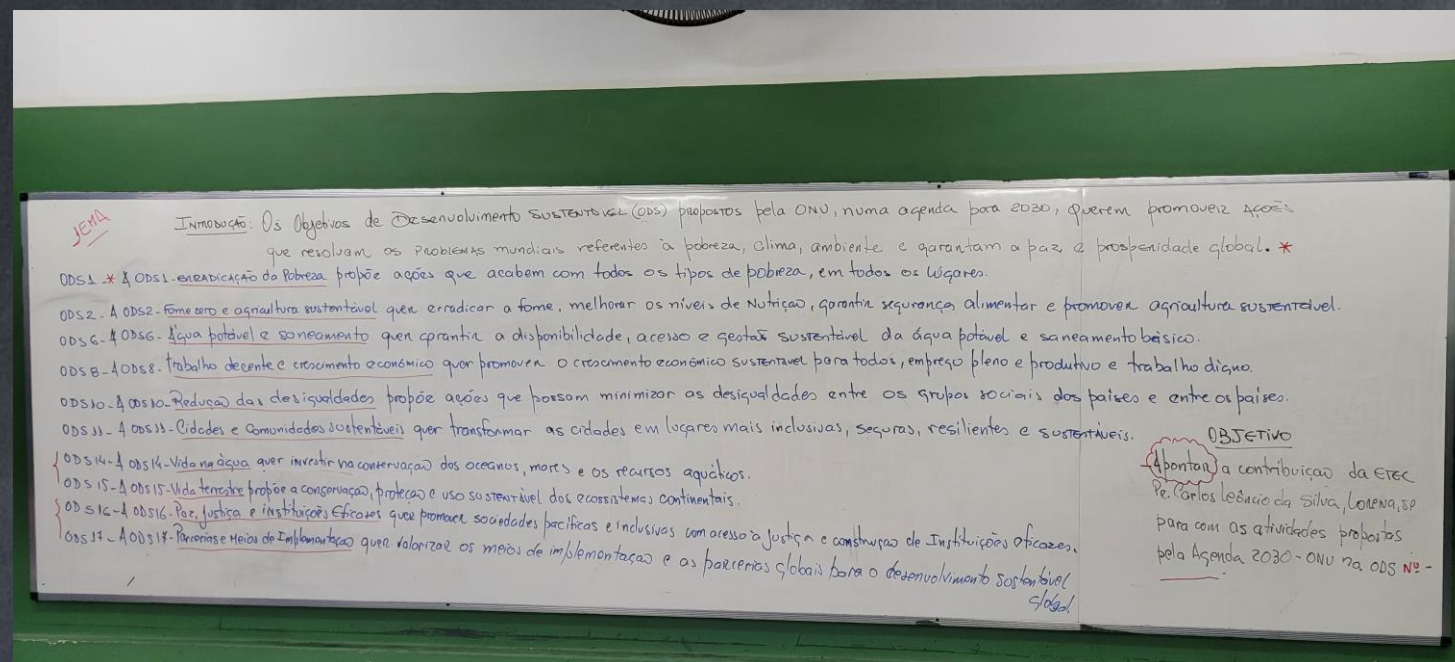 TEMA
INTRODUÇÃO: Os Objetivos de Desenvolvimento SUSTENTÁVEL (ODS) propostos pela ONU, numa agenda para 2030, querem promover AÇÕES
que resolvam os PROBLEMAS mundiais referentes à pobreza, clima, ambiente e garantam a paz e prosperidade global. *
ODS1 - * A ODS1 - ERRADICAÇÃO da Pobreza propõe ações que acabem com todos os tipos de pobreza, em todos os lugares.
ODS2 - A ODS2 - Fome zero e agricultura sustentável quer erradicar a fome, melhorar os níveis de Nutrição, garantir segurança alimentar e promover agricultura SUSTENTÁVEL.
ODS6 - A ODS6 - Água potável e saneamento quer garantir a disponibilidade, acesso e gestão sustentável da água potável e saneamento básico.
ODS8 - A ODS8 - Trabalho decente e crescimento econômico quer promover o crescimento econômico sustentável para todos, emprego pleno e produtivo e trabalho digno.
ODS10 - A ODS10 - Redução das desigualdades propõe ações que possam minimizar as desigualdades entre os grupos sociais dos países e entre os países.
ODS11 - A ODS11 - Cidades e Comunidades Sustentáveis quer transformar as cidades em lugares mais inclusivas, seguras, resilientes e SUSTENTÁVEIS.
ODS14 - A ODS14 - Vida na água quer investir na conservação dos oceanos, mares e os recursos aquáticos.
ODS15 - A ODS15 - Vida terrestre propõe a conservação, proteção e uso sustentável dos ecossistemas continentais.
ODS16 - A ODS16 - Paz, Justiça e instituições Eficazes quer promover sociedades pacíficas e inclusivas com acesso à Justiça e construção de Instituições eficazes.
ODS17 - A ODS17 - Parcerias e Meios de Implementação quer valorizar os meios de implementação e as parcerias globais para o desenvolvimento sustentável
global.
OBJETIVO
Apontar a contribuição da ETEC
Pe. Carlos Leôncio da Silva, LORENA, SP
para com as atividades propostas
pela Agenda 2030 - ONU na ODS Nº -